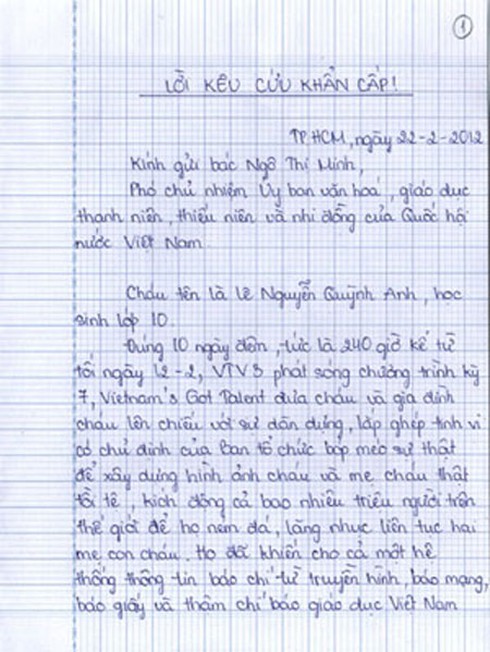 1
LỜI KÊU CỨU KHẨN CẤP!
TP.HCM, ngày 22-2-2012
Kính gửi bác Ngô Thị Minh,
Phó chủ nhiệm Ủy ban văn hoá, giáo dục
thanh niên, thiếu niên và nhi đồng của Quốc hội
nước Việt Nam
Cháu tên là Lê Nguyễn Quỳnh Anh, học
sinh lớp 10.
Đúng 10 ngày đêm, tức là 240 giờ kể từ
tối ngày 12-2, VTV3 phát sóng chương trình kỳ
7, Vietnam's Got Talent đưa cháu và gia đình
cháu lên chiếu với sự dàn dựng, lắp ghép tinh vi
có chủ định của Ban tổ chức bóp méo sự thật
để xây dựng hình ảnh cháu và mẹ cháu thật
tồi tệ, kích động cả bao nhiêu triệu người trên
thế giới để họ ném đá, lăng nhục liên tục hai
mẹ con cháu. Họ đã khiến cho cả một hệ
thống thông tin báo chí từ truyền hình, báo mạng,
báo giấy và thậm chí báo giáo dục Việt Nam